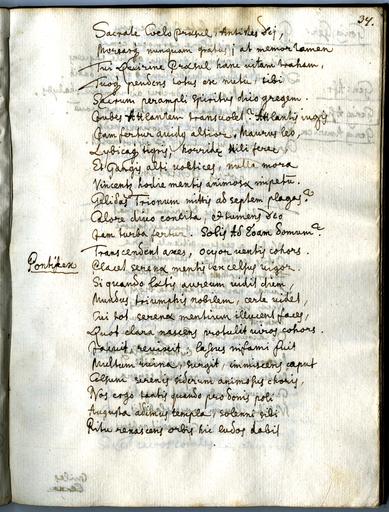 34.
Sacrate Coelo praesul, Antistes Dej,
numquam gratus; at memor tamen
Tui Quirine Praesul hanc vitam traham,
Tuoq pendens totus ex nutu, tibi
Sacrum perampli spiritus duco gregem.
Atlantem transvolet: Atlantis
Jam fertur auidis altior, Maurus leo
tigris, horridae Nili ferae
Et Gangis alti vortices, nulla mora
Vincent, hodie mentis animosae impetu.
Gelidas Trionum mittis ad septem plagas?
Calore diuo concita, et numens deo
Jam turba fertur. Solis Ad Eoam domum?
Transcendent axes, ocyor ventis cohors.
Pontifex
Claret serena mentis excelsus vigor.
Si quando laetis aureum vidit diem,
Mundus, triumphis nobilem, certe videt,
Cui tot serena mentium illucent faces,
Quot clara nascens protulit viros cohors.
reuixit, lapsus infami fuit
Multum ruina, surgit, immiscens caput
siderum animosus choris,
Nos ergo tantis quando pro donis poli
Augusta adimus templa, solenni tibi
Ritu renascens orbis hic ludos dabit